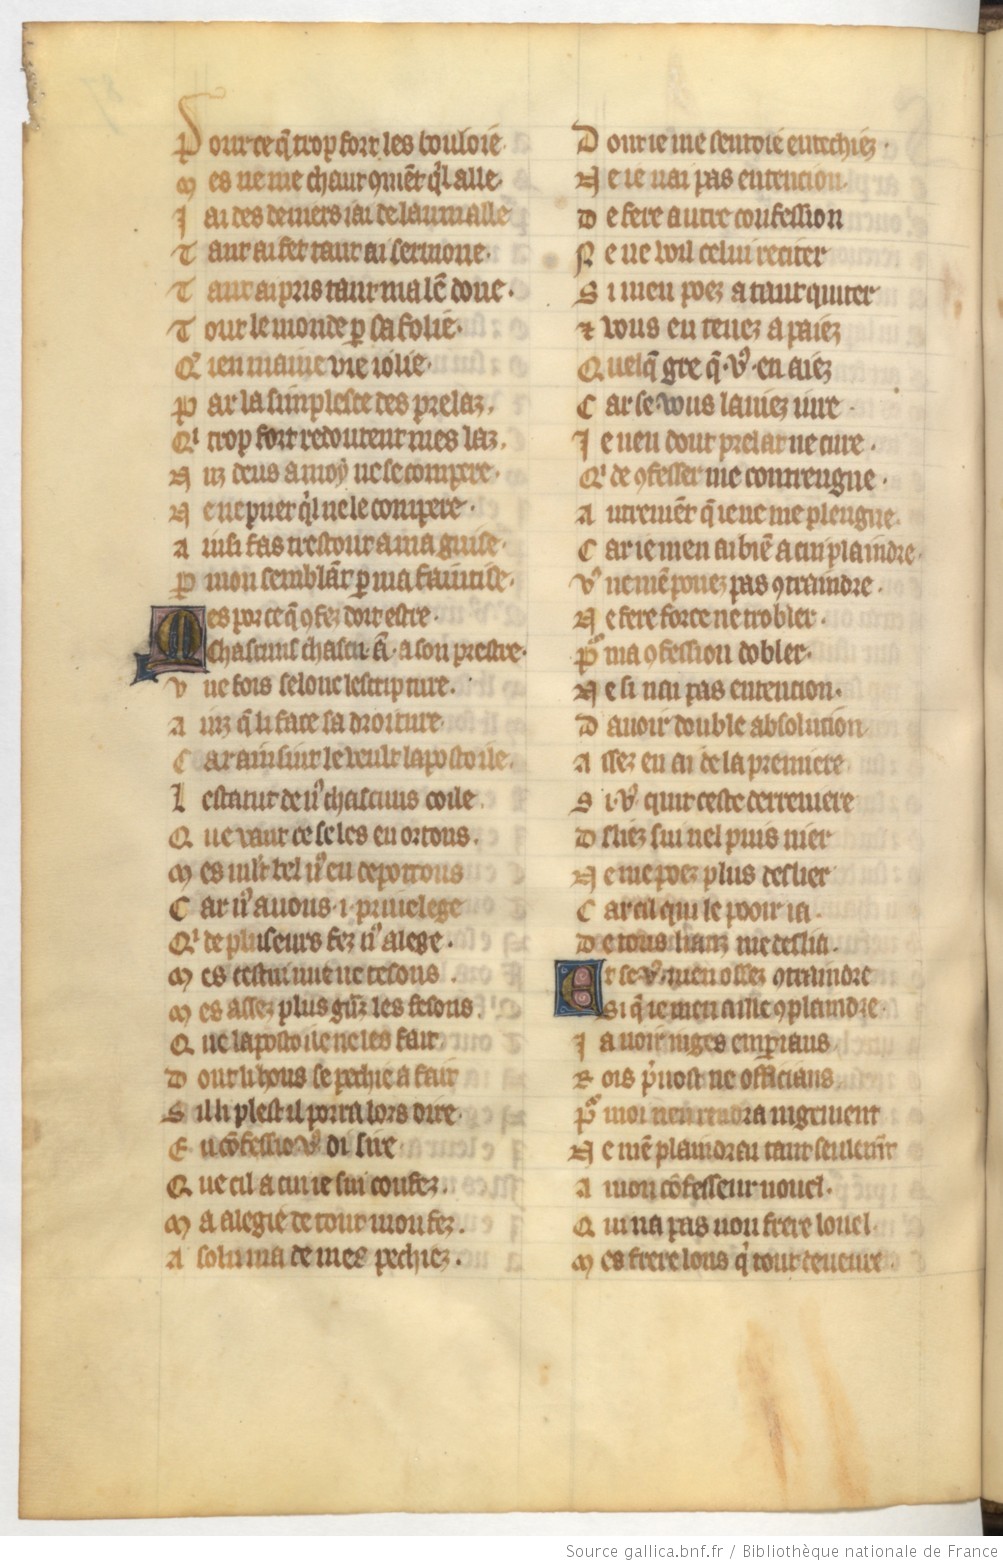 P our ce q̃ trop fort les bouloie
M es ne me chaut ꝯmẽt q̉l alle
J ai des deniers iai de laumaille
T ant ai fet tant ai sermone.
T ant ai pris tant ma lẽ done.
T out le monde ꝑ sa folie.
Qͥ ien maine vie iolie.
P ar la simplesce des prelaz.
Qͥ trop fort redoutent mes laz.
N uz deus a moy ne se compere.
N e ne puet q̉l ne le compere.
A insi fas trestout a ma guise.
P mon semblãt ꝑ ma faintise.
Mes por ce q̃ ꝯfez doit estre.
Chascuns chascũ ã. a son prestre.
V ne fois selonc lescripture.
A inz q̃ li face sa droiture.
C ar ainsint le veult lapostoile.
L estatut de nͦ chascuns coile
Q ue vaut ce se les enortons.
M es ml̃t bel nͦ en deportons
C ar nͦ auons .i. priuelege
Qͥ de pluseurs fez nͦ alege.
M es cestui mie ne tesons.
M es assez plus gñz les fesons.
Q ue lapostoile ne les fait.
D ont li hons se pechie a fait
S il li plest il porra lors dire.
E n cõfession vͦ di sire.
Q ue cil a cui ie sui confez.
M a alegie de tout mon fez.
A solu ma de mes pechiez.
D ont ie me sentoie entechiez.
N e ie nai pas entencion.
D e fere autre confession
N e ne voil celui reciter
S i men poez a tant quiter
⁊ vous en tenez a paiez
Q uelq̃ gre q̃ .vͦ. en aiez
C ar se vous lauiez iure.
J e nen dout prelat ne cure.
Qͥ de ꝯfesser me contrengne.
A utremẽt q̃ ie ne me plengne.
C ar ie men ai biẽ a cui plaindre.
Vͦ ne mẽ pouez pas ꝯtraindre.
N e fere force ne trobler.
Pͦ ma ꝯfession dobler.
N e si nai pas entencion.
D auoir double absolucion
A ssez en ai de la premiere
S i vͦ quit ceste derreniere
D sliez sui nel puis nier
N e me poez plus deslier
C ar cil qui le pooir i a.
D e tous lianz me deslia.
Et se .vͦ. men ossez ꝯtraindre
Si q̃ ie men aille ꝯplaindre.
J a voir iuges emꝑiaus
R ois p̉uost ne officiaus.
Pͦ moi nen rendra iugement
N e mẽ plaindrai tant seulemẽt
A mon cõfesseur nouel.
Q ui na pas non frere louel.
M es frere lous q̉ tout deueure.
Source gallica.bnf.fr / Bibliothèque nationale de France